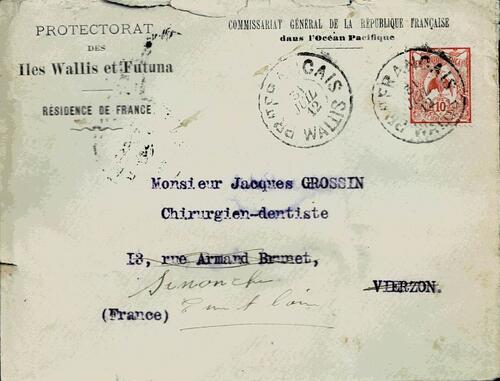 PROTECTORAT
DES
Iles Wallis et Futuna
RÉSIDENCE DE FRANCE
COMMISSARIAT GÉNÉRAL DE LA RÉPUBLIQUE FRANÇAISE
dans l'Océan Pacifique
PROT. FRANÇAIS
JUIL
12
WALLIS
PROT. FRANÇAIS
WALLIS
10
Monsieur Jacques GROSSIN
Chirurgien-dentiste
18, rue Armand Brunet,
VIERZON.
(France)